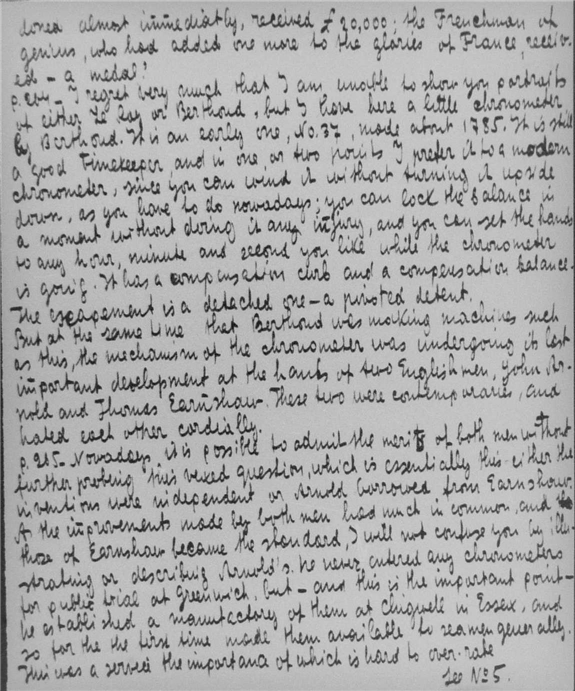 doned almost immediatly, received £20,000; the Frenchman of
genius, who had added one more to the glories of France, receiv-
ed - a medal!
p.264 - I regret very much that I am unable to show you portraits
of either Le Roy or Berthoud, but I have here a little chronometer
by Berthoud. It is an early one, No. 37, made about 1785. It is still
a good timekeeper, and in one or two points I prefer it to a modern
chronometer, since you can wind it without turning it upside
down, as you have to do nowadays; you can lock the balance in
a moment without doing it any injury, and you can set the hands
to any hour, minute and second you like while the chronometer
is going. It has a compensation curb and a compensation balance.
The escapement is a detached one - a pivoted detent.
But at the same time that Berthoud was making machines such
as this, the mechanism of the chronometer was undergoing its last
important development at the hands of two Englishmen, John Ar-
nold and Thomas Earnshaw. These two were contemporaries, and
hated each other cordially.
p.265 - Nowadays it is possible to admit the merits of both men without
further probing this vexed question, which is essentially this - either the
inventions were independent or Arnold borrowed from Earnshaw.
As the improvements made by both men had much in common, and
those of Earnshaw became the standard, I will not confuse you by illu-
strating or describing Arnold's. he never entered any chronometers
for public trial at Greenwich, but - and this is the important point -
he established a manufactory of them at Chigwell in Essex, and
so for the the first time made them available to seamen generally.
This was a service the importance of which is hard to over-rate
See No 5.